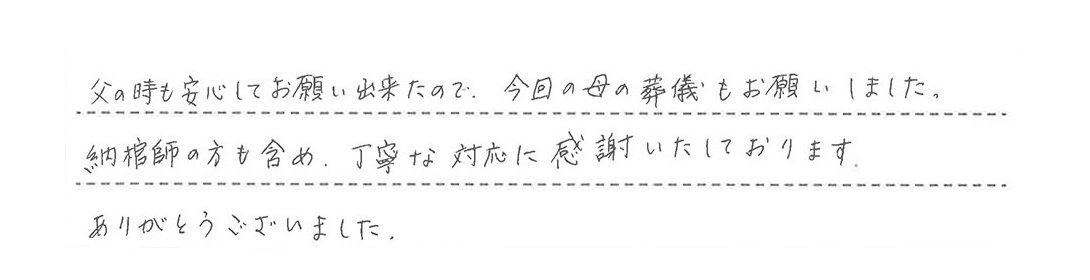 父の時も安心してお願い出来たので、今回の母の葬儀もお願いしました。
納棺師の方も含め、丁寧な対応に感謝いたしております。
ありがとうございました。